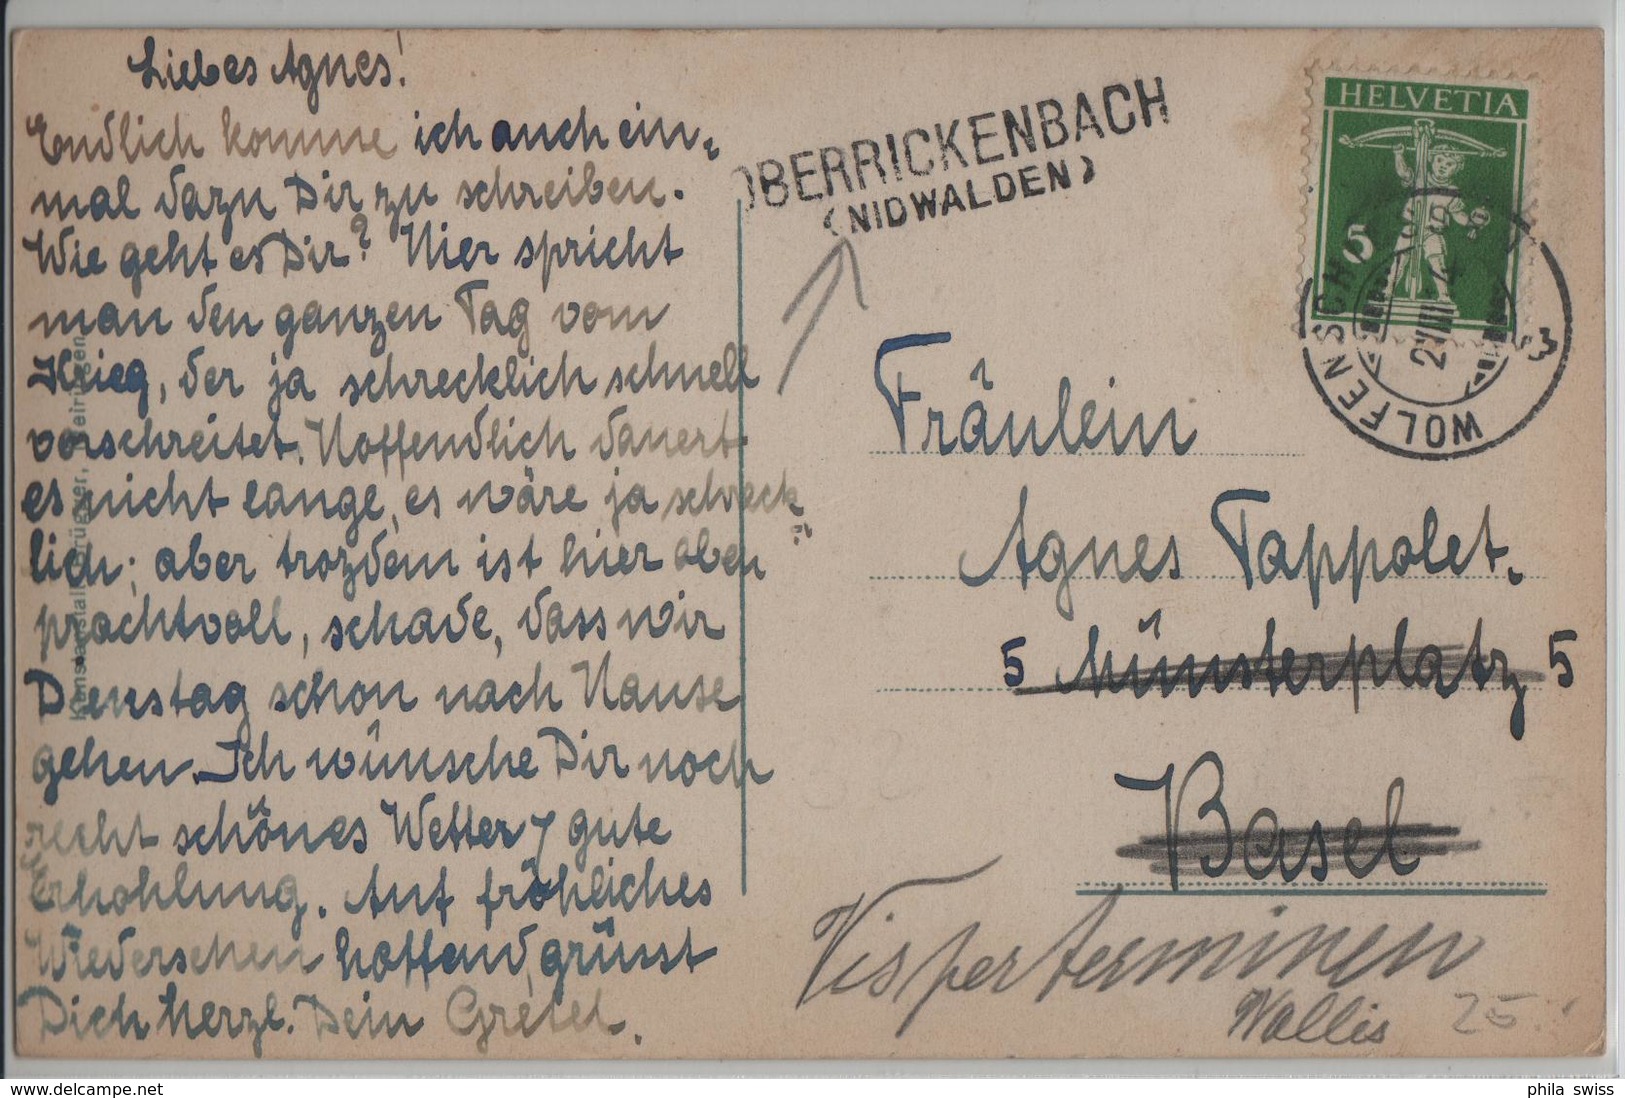 Liebes Agnes!
Endlich komme ich auch ein-
mal dazu Dir zu schreiben.
Wie geht es Dir? Hier spricht
man den ganzen Tag vom
Krieg, der ja schrecklich schnell
vorschreitet. Hoffendlich dauert
es nicht lange, es wäre ja schreck
lich; aber trozdem ist hier oben
prachtvoll, schade, dass wir
Dienstag schon nach Hause
gehen. Ich wünsche Dir noch
recht schönes Wetter & gute
Erhohlung. Auf fröhliches
Wiedersehen hoffend, grüsst
Dich herzl. Dein Gretel.
OBERRICKENBACH
(NIDWALDEN)
HELVETIA
5
WOLFENSCH
Fräulein
Agnes Tappolet.
5 Münsterplatz 5
Basel
Visperterminen
Wallis
25.
delcampe.net
phila swiss